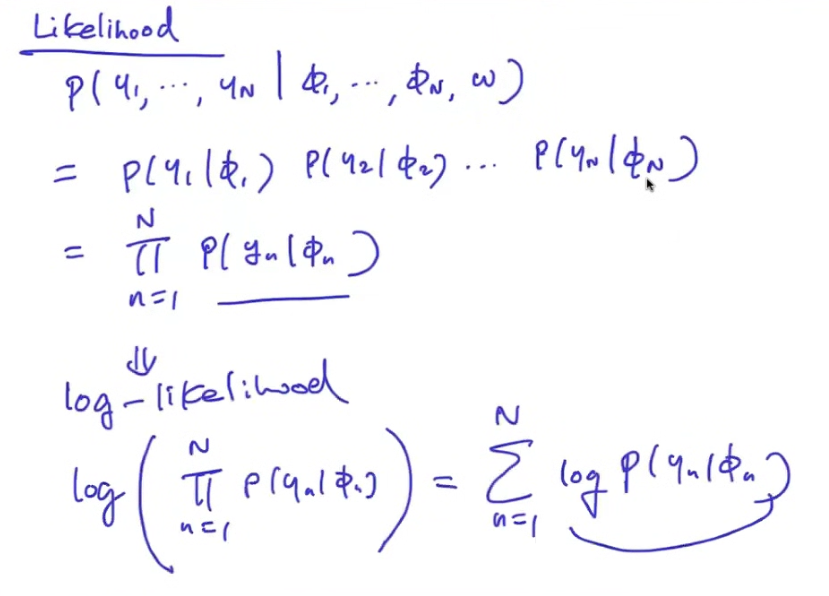 Likelihood
P(y₁, ..., y_N | Φ₁, ..., Φ_N, w)
= P(y₁|Φ₁) P(y₂|Φ₂) ... P(y_N|Φ_N)
= ∏_{n=1}^{N} P(y_n|Φ_n)
⇓
log-likelihood
log(∏_{n=1}^{N} P(y_n|Φ_n)) = ∑_{n=1}^{N} log P(y_n|Φ_n)